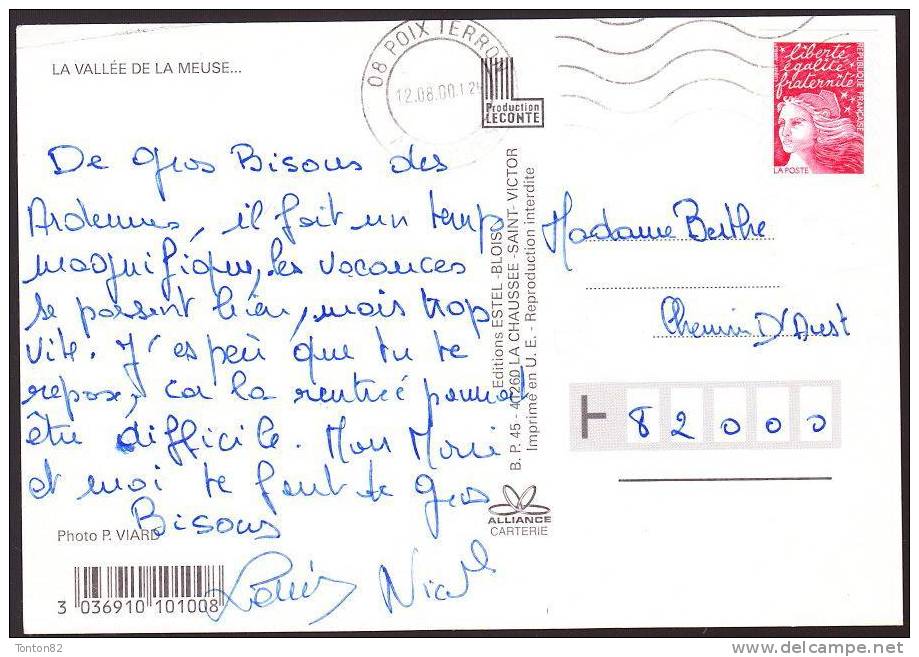 LA VALLÉE DE LA MEUSE...
08 POIX TERRO
12.08.00
Production
LECONTE
liberté
égalité
fraternité
RÉPUBLIQUE FRANÇAISE
LA POSTE
De gros Bisous des
Ardennes, il fait un temps
magnifique, les vacances
se passent bien, mais trop
vite. J'espère que tu te
repose, car la rentrée pourrait
être difficile. Mon Mari
et moi te font de gros
Bisous
Nicole
Editions ESTEL - BLOIS
B. P. 45 - 41260 LA CHAUSSEE - SAINT - VICTOR
Imprimé en U. E. - Reproduction interdite
Madame Berthe
Chemin D'
82000
ALLIANCE
CARTERIE
Photo P. VIARD
3 036910 101008
Tonton82
www.delcampe.net